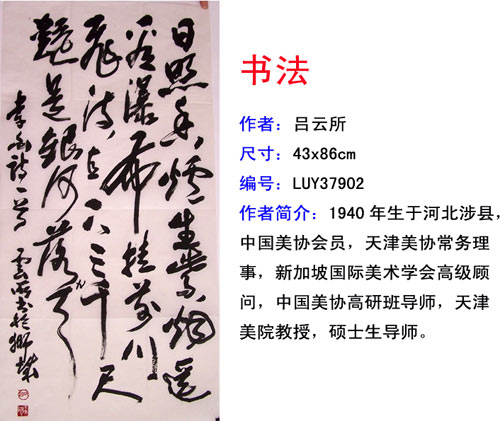 日照香爐生紫烟遥
看瀑布挂前川
飛流直下三千尺
疑是銀河落九天
李白詩一首
雲所书於獅城
书法
作者：吕云所
尺寸：43x86cm
编号：LUY37902
作者简介：1940 年生于河北涉县，
中国美协会员，天津美协常务理
事，新加坡国际美术学会高级顾
问，中国美协高研班导师，天津
美院教授，硕士生导师。